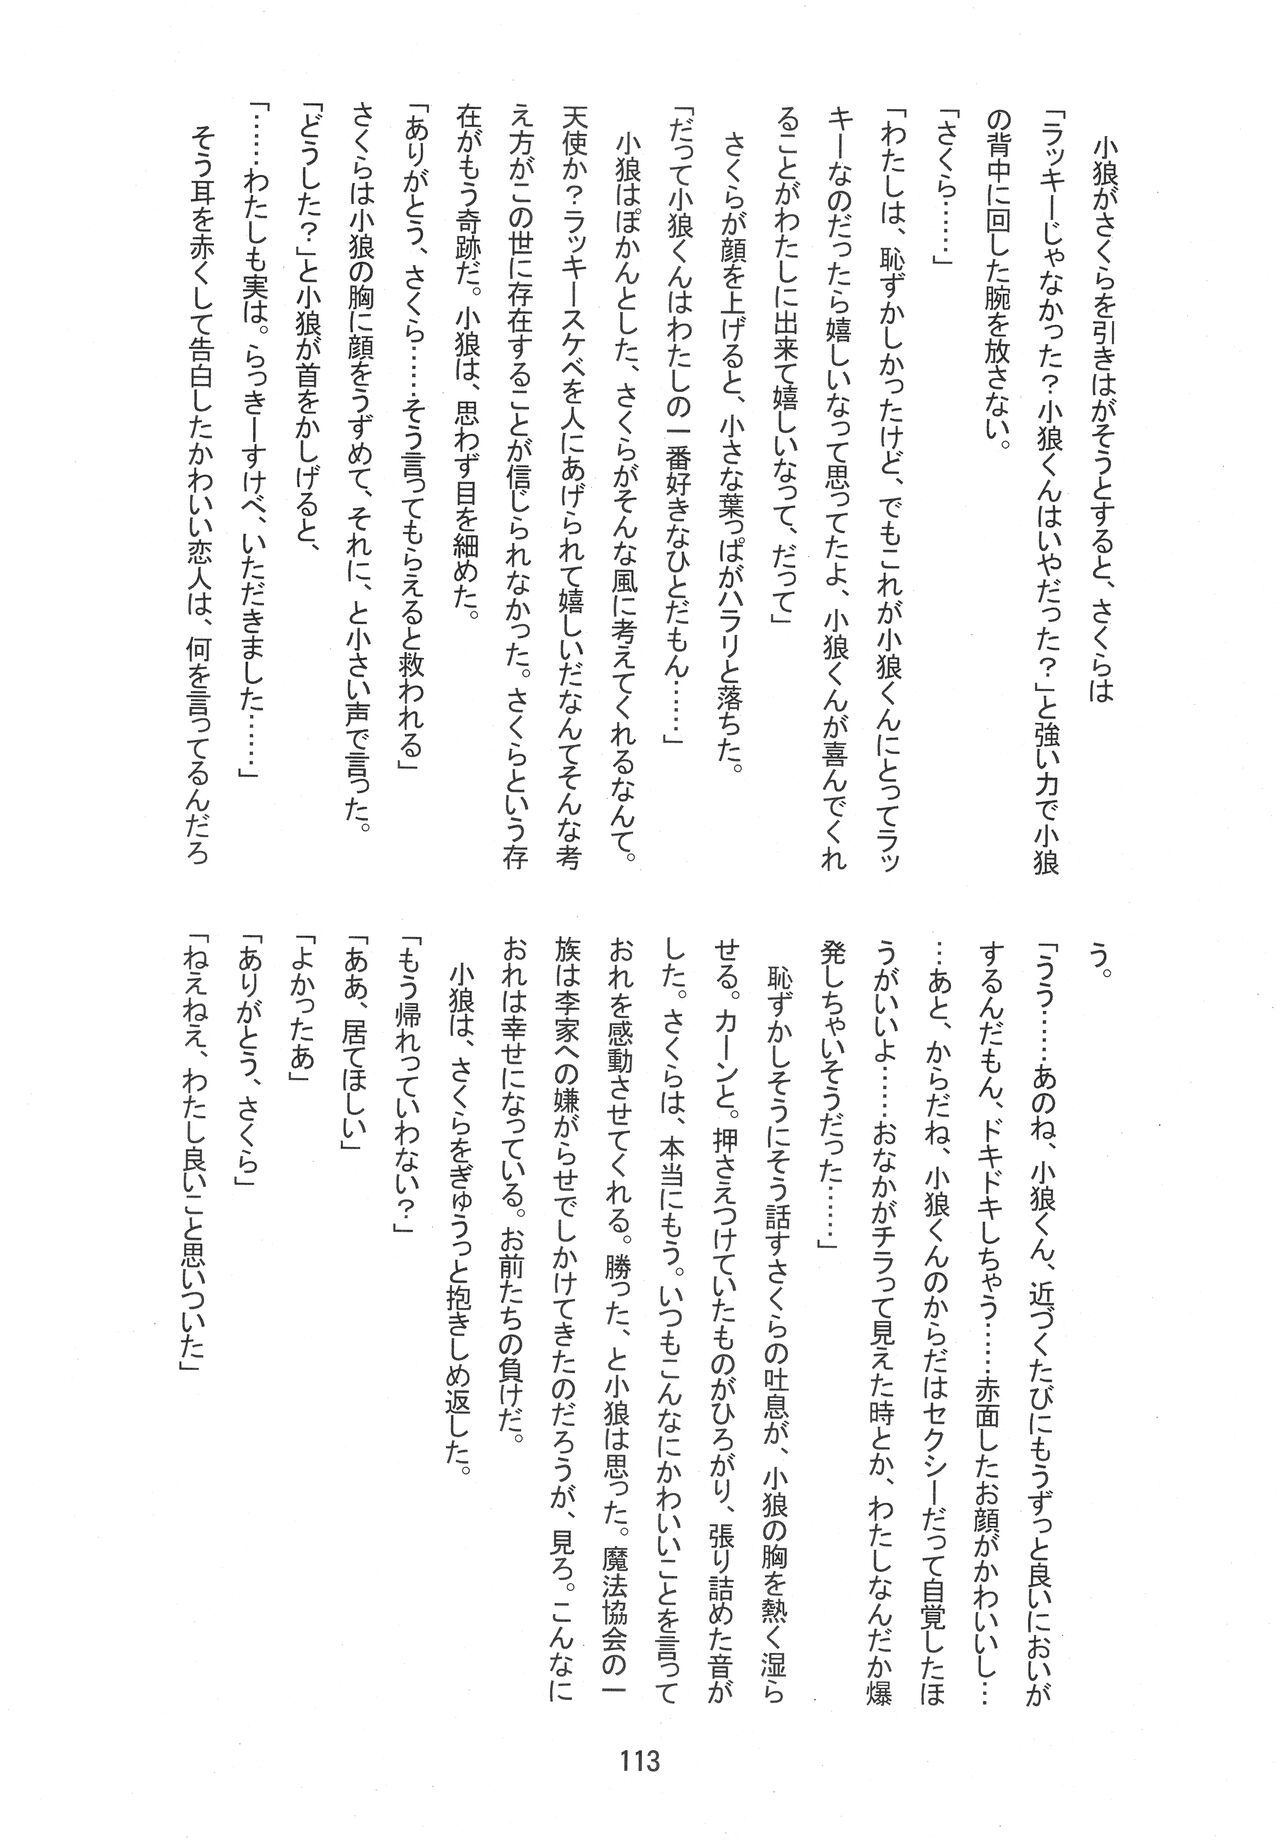 小狼がさくらを引きはがそうとすると、さくらは
「ラッキーじゃなかった？小狼くんはいやだった？」と強い力で小狼
の背中に回した腕を放さない。
「さくら……」
「わたしは、恥ずかしかったけど、でもこれが小狼くんにとってラッ
キーなのだったら嬉しいなって思ってたよ、小狼くんが喜んでくれ
ることがわたしに出来て嬉しいなって、だって」
　さくらが顔を上げると、小さな葉っぱがハラリと落ちた。
「だって小狼くんはわたしの一番好きなひとだもん……」
　小狼はぽかんとした、さくらがそんな風に考えてくれるなんて。
天使か？ラッキースケベを人にあげられて嬉しいだなんてそんな考
え方がこの世に存在することが信じられなかった。さくらという存
在がもう奇跡だ。小狼は、思わず目を細めた。
「ありがとう、さくら……そう言ってもらえると救われる」
さくらは小狼の胸に顔をうずめて、それに、と小さい声で言った。
「どうした？」と小狼が首をかしげると、
「……わたしも実は。らっきーすけべ、いただきました……」
　そう耳を赤くして告白したかわいい恋人は、何を言ってるんだろ
う。
「うう……あのね、小狼くん、近づくたびにもうずっと良いにおいが
するんだもん、ドキドキしちゃう……赤面したお顔がかわいいし…
…あと、からだね、小狼くんのからだはセクシーだって自覚したほ
うがいいよ……おなかがチラって見えた時とか、わたしなんだか爆
発しちゃいそうだった……」
　恥ずかしそうにそう話すさくらの吐息が、小狼の胸を熱く湿ら
せる。カーンと。押さえつけていたものがひろがり、張り詰めた音が
した。さくらは、本当にもう。いつもこんなにかわいいことを言って
おれを感動させてくれる。勝った、と小狼は思った。魔法協会の一
族は李家への嫌がらせでしかけてきたのだろうが、見ろ。こんなに
おれは幸せになっている。お前たちの負けだ。
　小狼は、さくらをぎゅうっと抱きしめ返した。
「もう帰れっていわない？」
「ああ、居てほしい」
「よかったあ」
「ありがとう、さくら」
「ねえねえ、わたし良いこと思いついた」
113